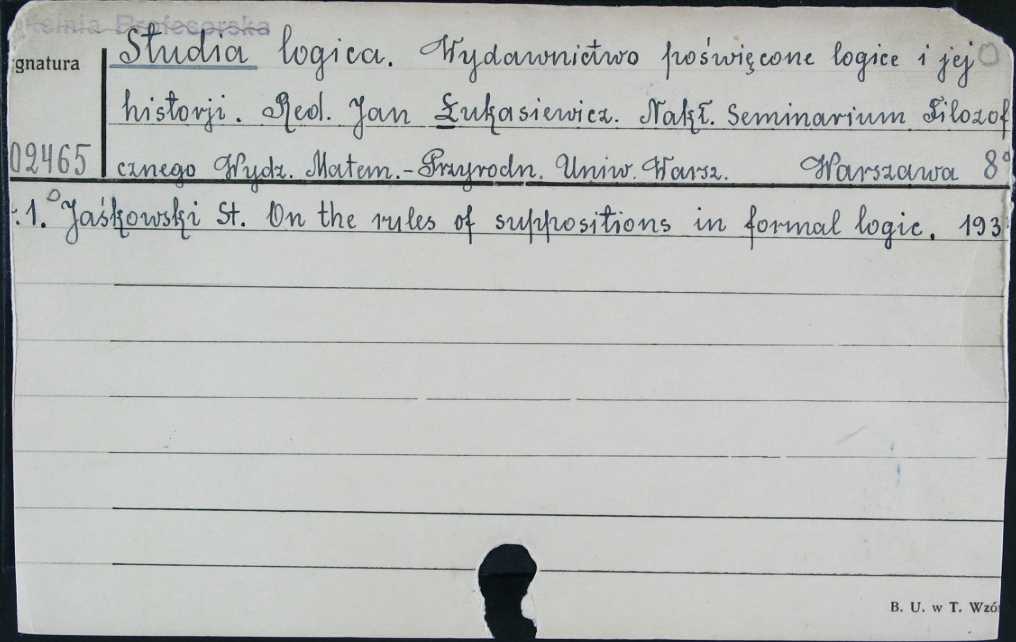 telnia Profesorska
gnatura
Studia logica. Wydawnictwo poświęcone logice i jej
historji. Red. Jan Łukasiewicz. Nakł. Seminarium Filozof
02465
cznego Wydz. Matem.-Przyrodn. Uniw. Warsz. Warszawa 8°
1. Jaśkowski St. On the rules of suppositions in formal logic. 193
B. U. w T. Wzó